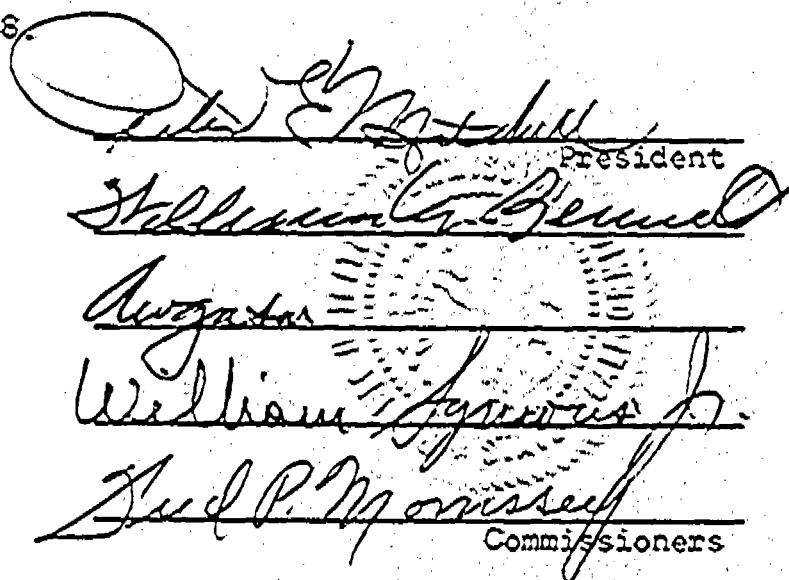 s.
Peter E. Mitchell
President
William A. Bennett
William Symons Jr.
Fred P. Morrissey
Commissioners